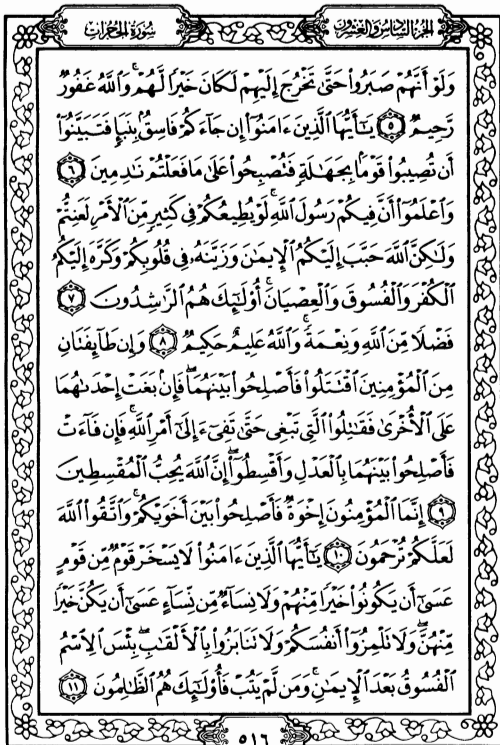 سُورَةُ الحُجُرَاتِ
الجُزْءُ السَّادِسُ وَالعِشْرُونَ
وَلَوْ أَنَّهُمْ صَبَرُوا۟ حَتَّىٰ تَخْرُجَ إِلَيْهِمْ لَكَانَ خَيْرًا لَّهُمْ ۚ وَٱللَّهُ غَفُورٌ
رَّحِيمٌ ٥ يَٰٓأَيُّهَا ٱلَّذِينَ ءَامَنُوٓا۟ إِن جَآءَكُمْ فَاسِقٌۢ بِنَبَإٍ فَتَبَيَّنُوٓا۟
أَن تُصِيبُوا۟ قَوْمًۢا بِجَهَٰلَةٍ فَتُصْبِحُوا۟ عَلَىٰ مَا فَعَلْتُمْ نَٰدِمِينَ ٦
وَٱعْلَمُوٓا۟ أَنَّ فِيكُمْ رَسُولَ ٱللَّهِ ۚ لَوْ يُطِيعُكُمْ فِى كَثِيرٍ مِّنَ ٱلْأَمْرِ لَعَنِتُّمْ
وَلَٰكِنَّ ٱللَّهَ حَبَّبَ إِلَيْكُمُ ٱلْإِيمَٰنَ وَزَيَّنَهُۥ فِى قُلُوبِكُمْ وَكَرَّهَ إِلَيْكُمُ
ٱلْكُفْرَ وَٱلْفُسُوقَ وَٱلْعِصْيَانَ ۚ أُو۟لَٰٓئِكَ هُمُ ٱلرَّٰشِدُونَ ٧
فَضْلًا مِّنَ ٱللَّهِ وَنِعْمَةً ۚ وَٱللَّهُ عَلِيمٌ حَكِيمٌ ٨ وَإِن طَآئِفَتَانِ
مِنَ ٱلْمُؤْمِنِينَ ٱقْتَتَلُوا۟ فَأَصْلِحُوا۟ بَيْنَهُمَا ۖ فَإِنۢ بَغَتْ إِحْدَىٰهُمَا
عَلَى ٱلْأُخْرَىٰ فَقَٰتِلُوا۟ ٱلَّتِى تَبْغِى حَتَّىٰ تَفِىٓءَ إِلَىٰٓ أَمْرِ ٱللَّهِ ۚ فَإِن فَآءَتْ
فَأَصْلِحُوا۟ بَيْنَهُمَا بِٱلْعَدْلِ وَأَقْسِطُوٓا۟ ۖ إِنَّ ٱللَّهَ يُحِبُّ ٱلْمُقْسِطِينَ
٩ إِنَّمَا ٱلْمُؤْمِنُونَ إِخْوَةٌ فَأَصْلِحُوا۟ بَيْنَ أَخَوَيْكُمْ ۚ وَٱتَّقُوا۟ ٱللَّهَ
لَعَلَّكُمْ تُرْحَمُونَ ١٠ يَٰٓأَيُّهَا ٱلَّذِينَ ءَامَنُوا۟ لَا يَسْخَرْ قَوْمٌ مِّن قَوْمٍ
عَسَىٰٓ أَن يَكُونُوا۟ خَيْرًا مِّنْهُمْ وَلَا نِسَآءٌ مِّن نِّسَآءٍ عَسَىٰٓ أَن يَكُنَّ خَيْرًا
مِّنْهُنَّ ۖ وَلَا تَلْمِزُوٓا۟ أَنفُسَكُمْ وَلَا تَنَابَزُوا۟ بِٱلْأَلْقَٰبِ ۖ بِئْسَ ٱلِٱسْمُ
ٱلْفُسُوقُ بَعْدَ ٱلْإِيمَٰنِ ۚ وَمَن لَّمْ يَتُبْ فَأُو۟لَٰٓئِكَ هُمُ ٱلظَّٰلِمُونَ ١١
٥١٦